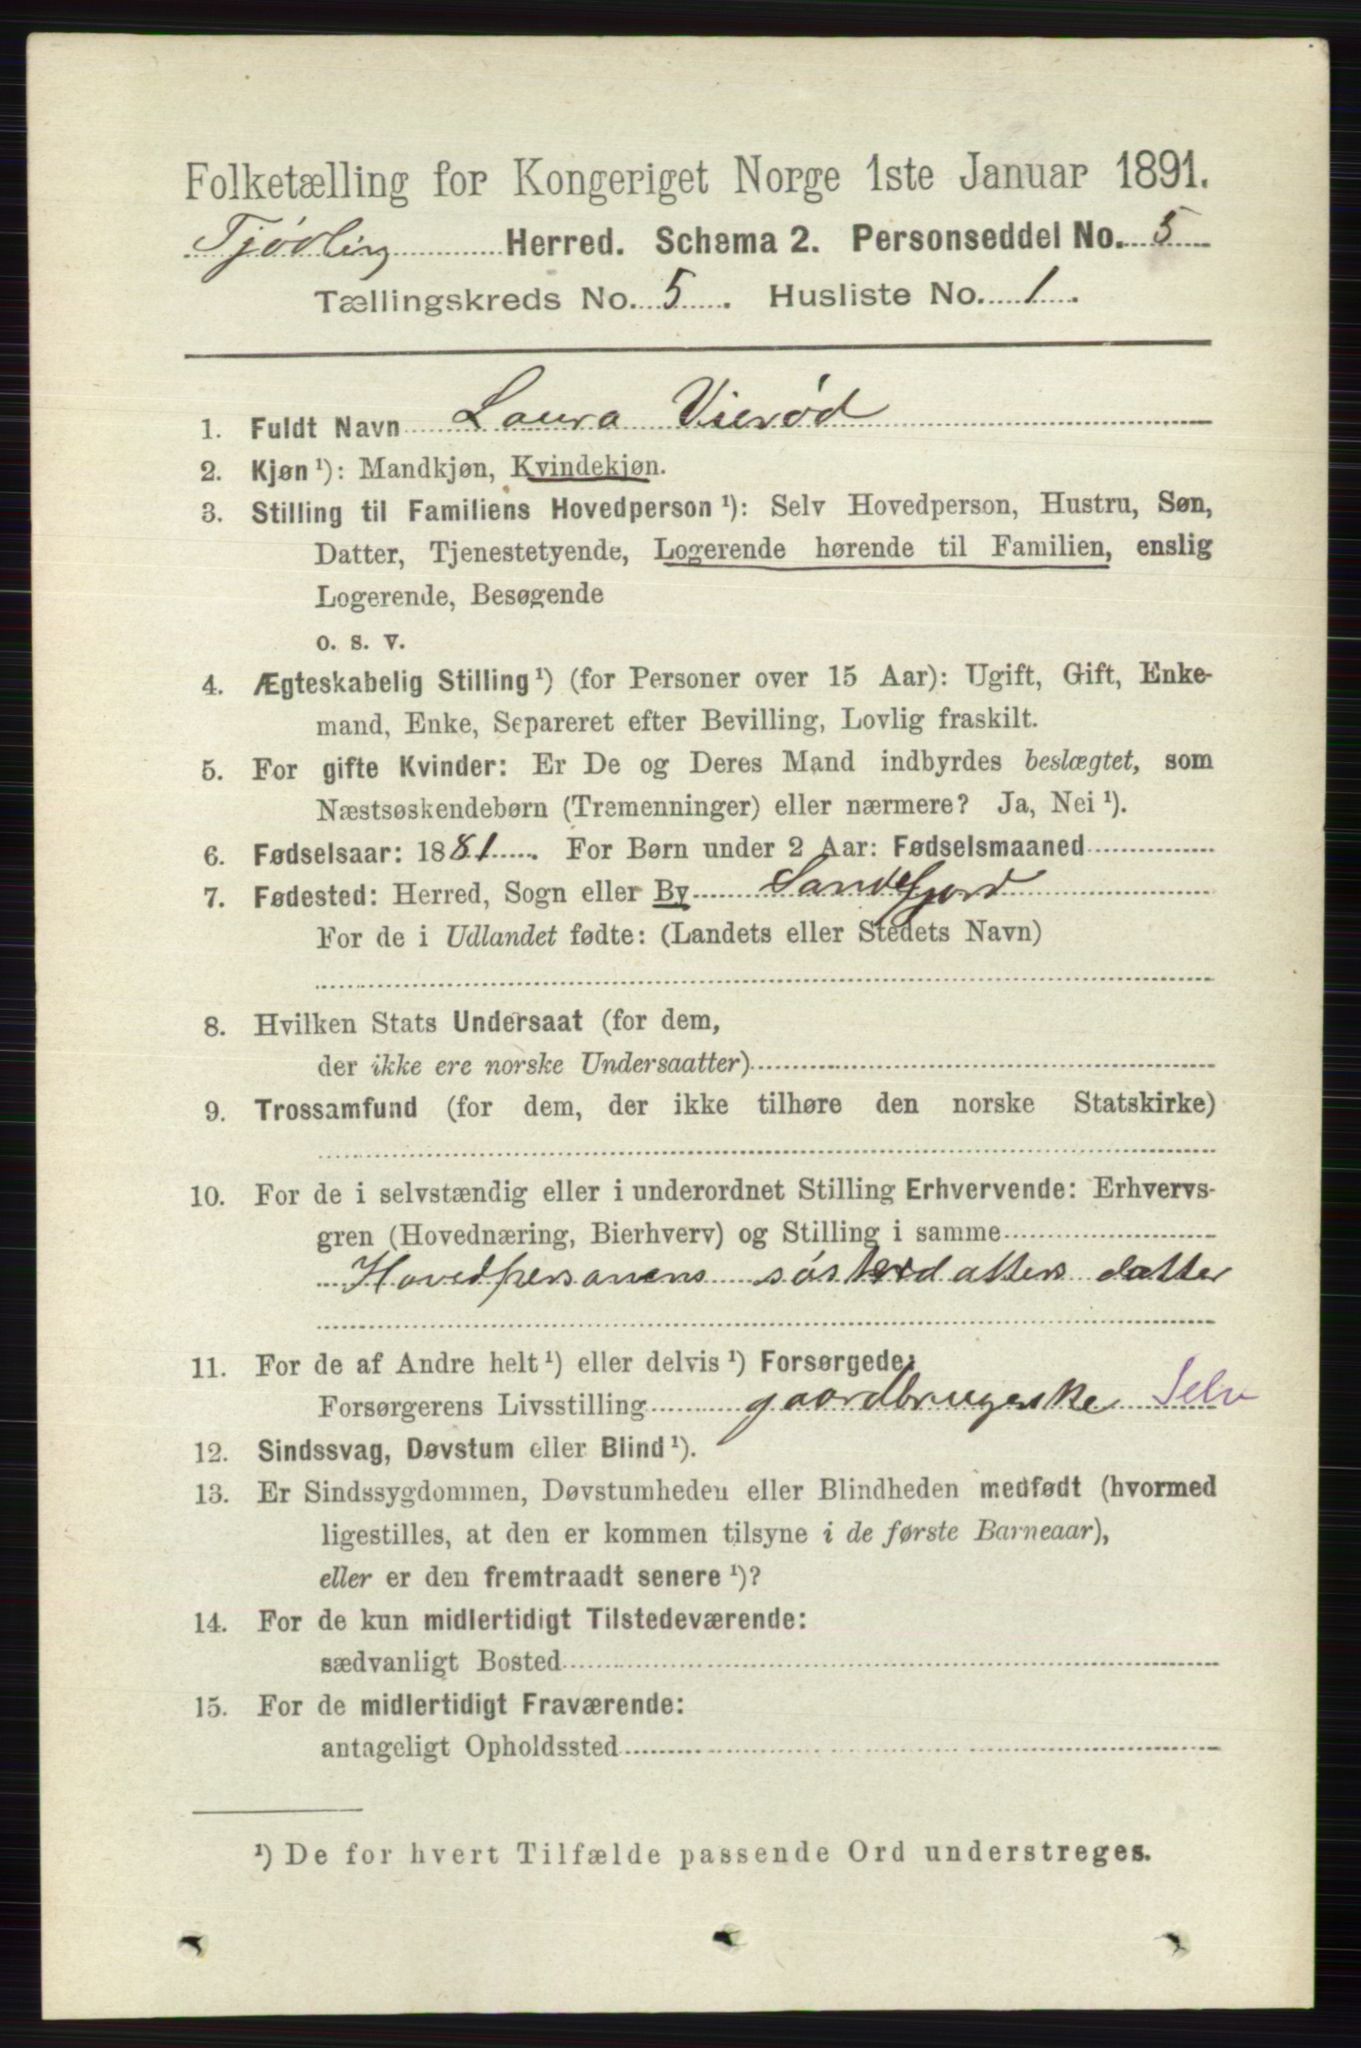 Folketælling for Kongeriget Norge 1ste Januar 1891.
Tjødling Herred. Schema 2. Personseddel No. 5
Tællingskreds No. 5. Husliste No. 1.
1. Fuldt Navn Laura Vierød
2. Kjøn ¹): Mandkjøn, Kvindekjøn.
3. Stilling til Familiens Hovedperson ¹): Selv Hovedperson, Hustru, Søn,
Datter, Tjenestetyende, Logerende hørende til Familien, enslig
Logerende, Besøgende
o. s. v.
4. Ægteskabelig Stilling ¹) (for Personer over 15 Aar): Ugift, Gift, Enke-
mand, Enke, Separeret efter Bevilling, Lovlig fraskilt.
5. For gifte Kvinder: Er De og Deres Mand indbyrdes beslægtet, som
Næstsøskendebørn (Tremenninger) eller nærmere? Ja, Nei ¹).
6. Fødselsaar: 1881. For Børn under 2 Aar: Fødselsmaaned
7. Fødested: Herred, Sogn eller By Sandefjord
For de i Udlandet fødte: (Landets eller Stedets Navn)
8. Hvilken Stats Undersaat (for dem,
der ikke ere norske Undersaatter)
9. Trossamfund (for dem, der ikke tilhøre den norske Statskirke)
10. For de i selvstændig eller i underordnet Stilling Erhvervende: Erhvervs-
gren (Hovednæring, Bierhverv) og Stilling i samme
Hovedpersonens søsterdatters datter
11. For de af Andre helt ¹) eller delvis ¹) Forsørgede:
Forsørgerens Livsstilling gaardbrugerske Selv
12. Sindssvag, Døvstum eller Blind ¹).
13. Er Sindssygdommen, Døvstumheden eller Blindheden medfødt (hvormed
ligestilles, at den er kommen tilsyne i de første Barneaar),
eller er den fremtraadt senere ¹)?
14. For de kun midlertidigt Tilstedeværende:
sædvanligt Bosted
15. For de midlertidigt Fraværende:
antageligt Opholdssted
¹) De for hvert Tilfælde passende Ord understreges.